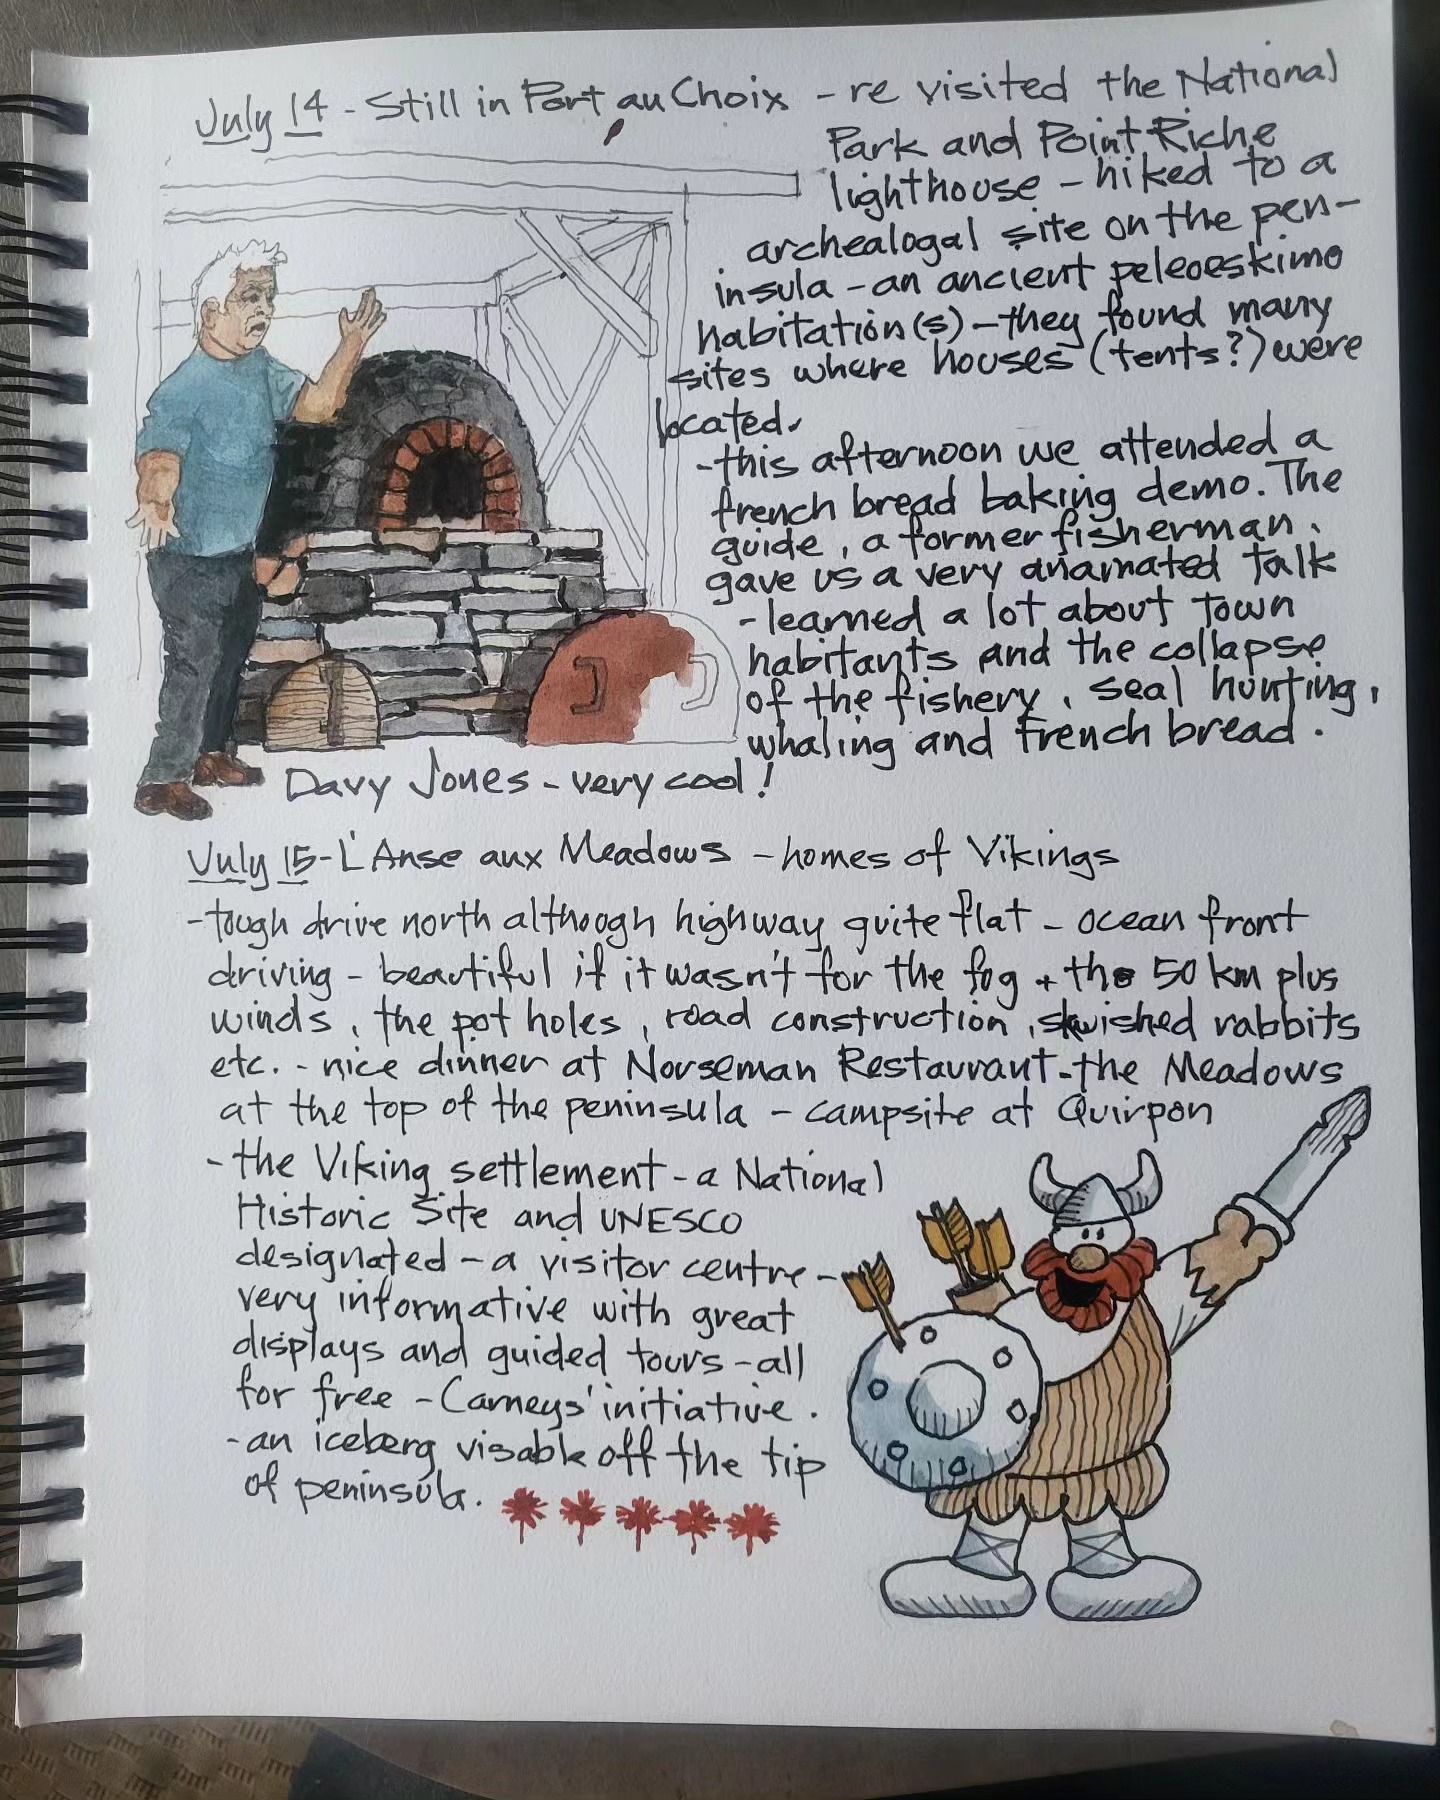 July 14 - Still in Port au Choix - re visited the National
Park and Point Riche
lighthouse - hiked to a
archealogal site on the pen-
insula - an ancient peleoeskimo
habitation(s) - they found many
sites where houses (tents?) were
located.
- this afternoon we attended a
french bread baking demo. The
guide, a former fisherman,
gave us a very anamated talk
- learned a lot about town
habitants and the collapse
of the fishery, seal hunting,
whaling and french bread.
Davy Jones - very cool!
July 15 - L'Anse aux Meadows - homes of Vikings
- tough drive north although highway quite flat - ocean front
driving - beautiful if it wasn't for the fog + the 50 km plus
winds, the pot holes, road construction, skwished rabbits
etc. - nice dinner at Norseman Restaurant - the Meadows
at the top of the peninsula - campsite at Quirpon
- the Viking settlement - a National
Historic Site and UNESCO
designated - a visitor centre -
very informative with great
displays and guided tours - all
for free - Carneys' initiative.
- an iceberg visable off the tip
of peninsula.